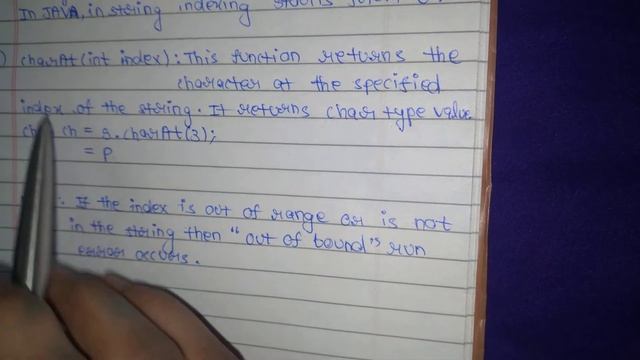 In JAVA, in string indexing starts from 0.
) charAt(int index): This function returns the
character at the specified
index of the string. It returns char type value.
ch = s.charAt(3);
= p
If the index is out of range or is not
in the string then "out of bound" run
error occurs.